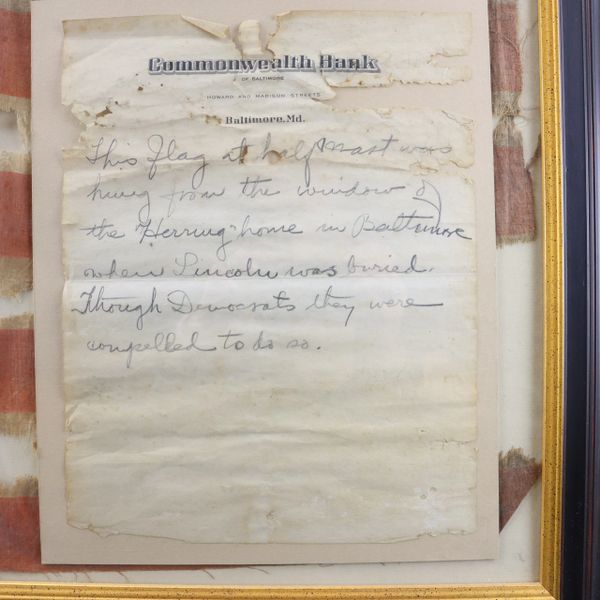 Commonwealth Bank
OF BALTIMORE
HOWARD AND MADISON STREETS
Baltimore, Md.
This flag at half mast was
hung from the window of
the "Herring" home in Baltimore
when Lincoln was buried.
Though Democrats they were
compelled to do so.